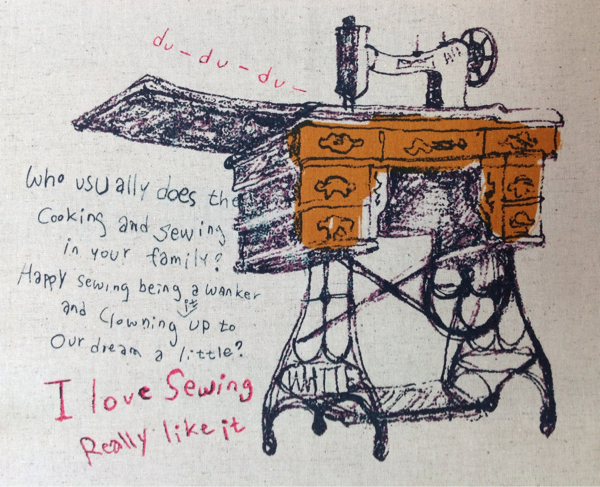 du - du - du -
Who usually does the
Cooking and sewing
in your family?
Happy sewing being a wanker
it
and Clowning up to
Our dream a little?
I love Sewing
Really like it
WHITE